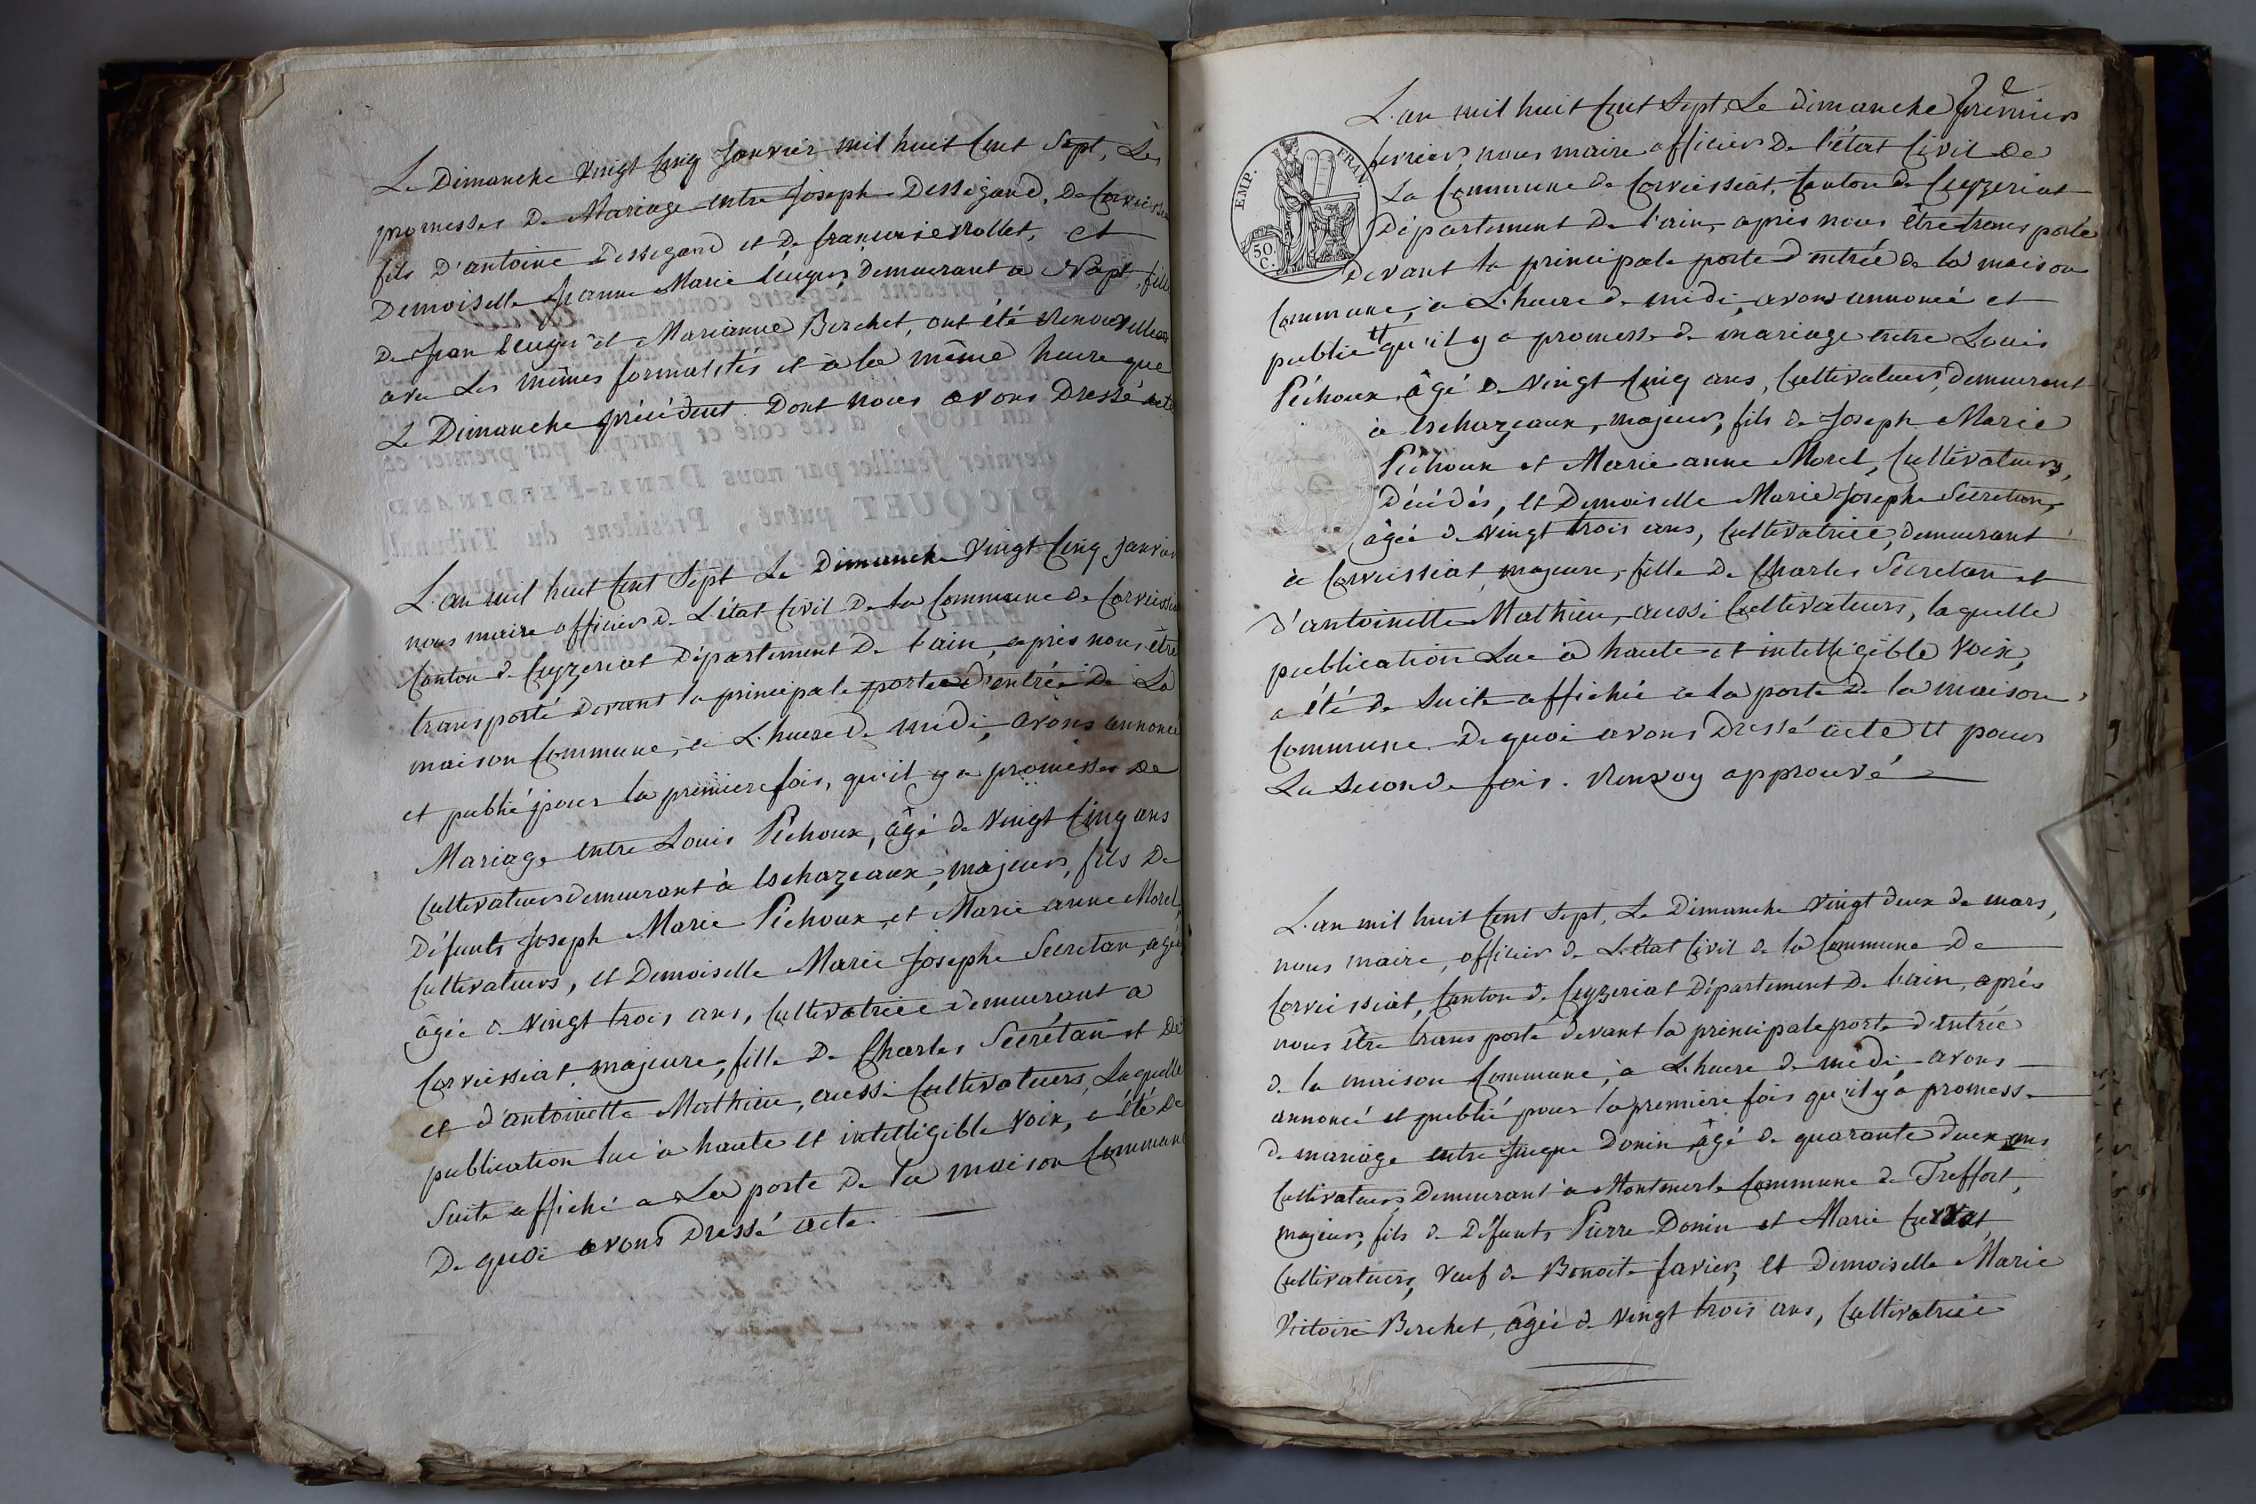 Le Dimanche vingt cinq Janvier mil huit cent Sept, Les
promesses De Mariage entre Joseph Dessigand, De Corveissia
fils D'antoine Dessigand et De francoise Nollet, et
Demoiselle Jeanne Marie demeurant a Napt, fille
De Jean et Marianne Berchet, ont été Renouvellées
avec Les mêmes formalités et à la même heure que
Le Dimanche précédent. Dont nous avons Dressé acte
L'an mil huit Cent Sept Le Dimanche vingt Cinq Janvier
nous maire officier De L'état Civil De la Commune de Corveissia
Canton de Ceyzeriat Département De l'ain, après nous être
transporté Devant la principale porte d'entrée De La
maison Commune, à L'heure De midi, avons annoncé
et publié pour la première fois, qu'il y a promesses De
Mariage entre Louis Péchoux, âgé de Vingt Cinq ans
Cultivateur demeurant à Eschazeaux, majeur, fils De
Défunts Joseph Marie Péchoux, et Marie anne Morel,
Cultivateurs, et Demoiselle Marie Josephe Secretan, agée
âgée de Vingt trois ans, Cultivatrice demeurant a
Corveissiat, majeure, fille De Charles Secrétan et De
et d'antoinette Mathieu, aussi Cultivateurs, Laquelle
publication lue à haute et intelligible Voix, a été De
Suite affiché a La porte De la maison Commune
De quoi avons Dressé acte.
2e
L'an mil huit Cent Sept, Le dimanche premier
fevrier, nous maire officier De l'état Civil De
La Commune de Corveissiat, Canton de Ceyzeriat
Département De l'ain, après nous être transporté
EMP. FRAN.
50 C.
Devant la principale porte d'entrée de la maison
Commune, à L'heure de midi, avons annoncé et
publié # qu'il y a promesse de mariage entre Louis
Péchoux, âgé de Vingt Cinq ans, Cultivateur, demeurant
à Eschazeaux, majeur, fils de Joseph Marie
Péchoux et Marie anne Morel, Cultivateurs,
Décédés, et Demoiselle Marie Josephe Secretan,
âgée de Vingt trois ans, Cultivatrice, demeurant
à Corveissiat, majeure, fille De Charles Secretan et
d'antoinette Mathieu, aussi Cultivateurs, laquelle
publication Lue à haute et intelligible Voix,
a été de Suite affichée a la porte De la maison
Commune. De quoi avons Dressé acte # pour
La seconde fois. Renvoy approuvé
L'an mil huit Cent Sept, Le Dimanche Vingt deux de mars,
nous maire, officier de L'état Civil de la Commune De
Corveissiat, Canton de Ceyzeriat Département De l'ain, après
nous être transporté devant la principale porte d'entrée
de la maison Commune, à L'heure de midi, avons
annoncé et publié pour la première fois qu'il y a promesse
de mariage entre Jacque Donin âgé de quarante deux ans
Cultivateur Demeurant à Montmerle Commune de Treffort,
majeur, fils de Défunts Pierre Donin et Marie
Cultivateurs, Veuf de Benoite Favier, et Demoiselle Marie
Victoire Berchet, âgée de Vingt trois ans, Cultivatrice